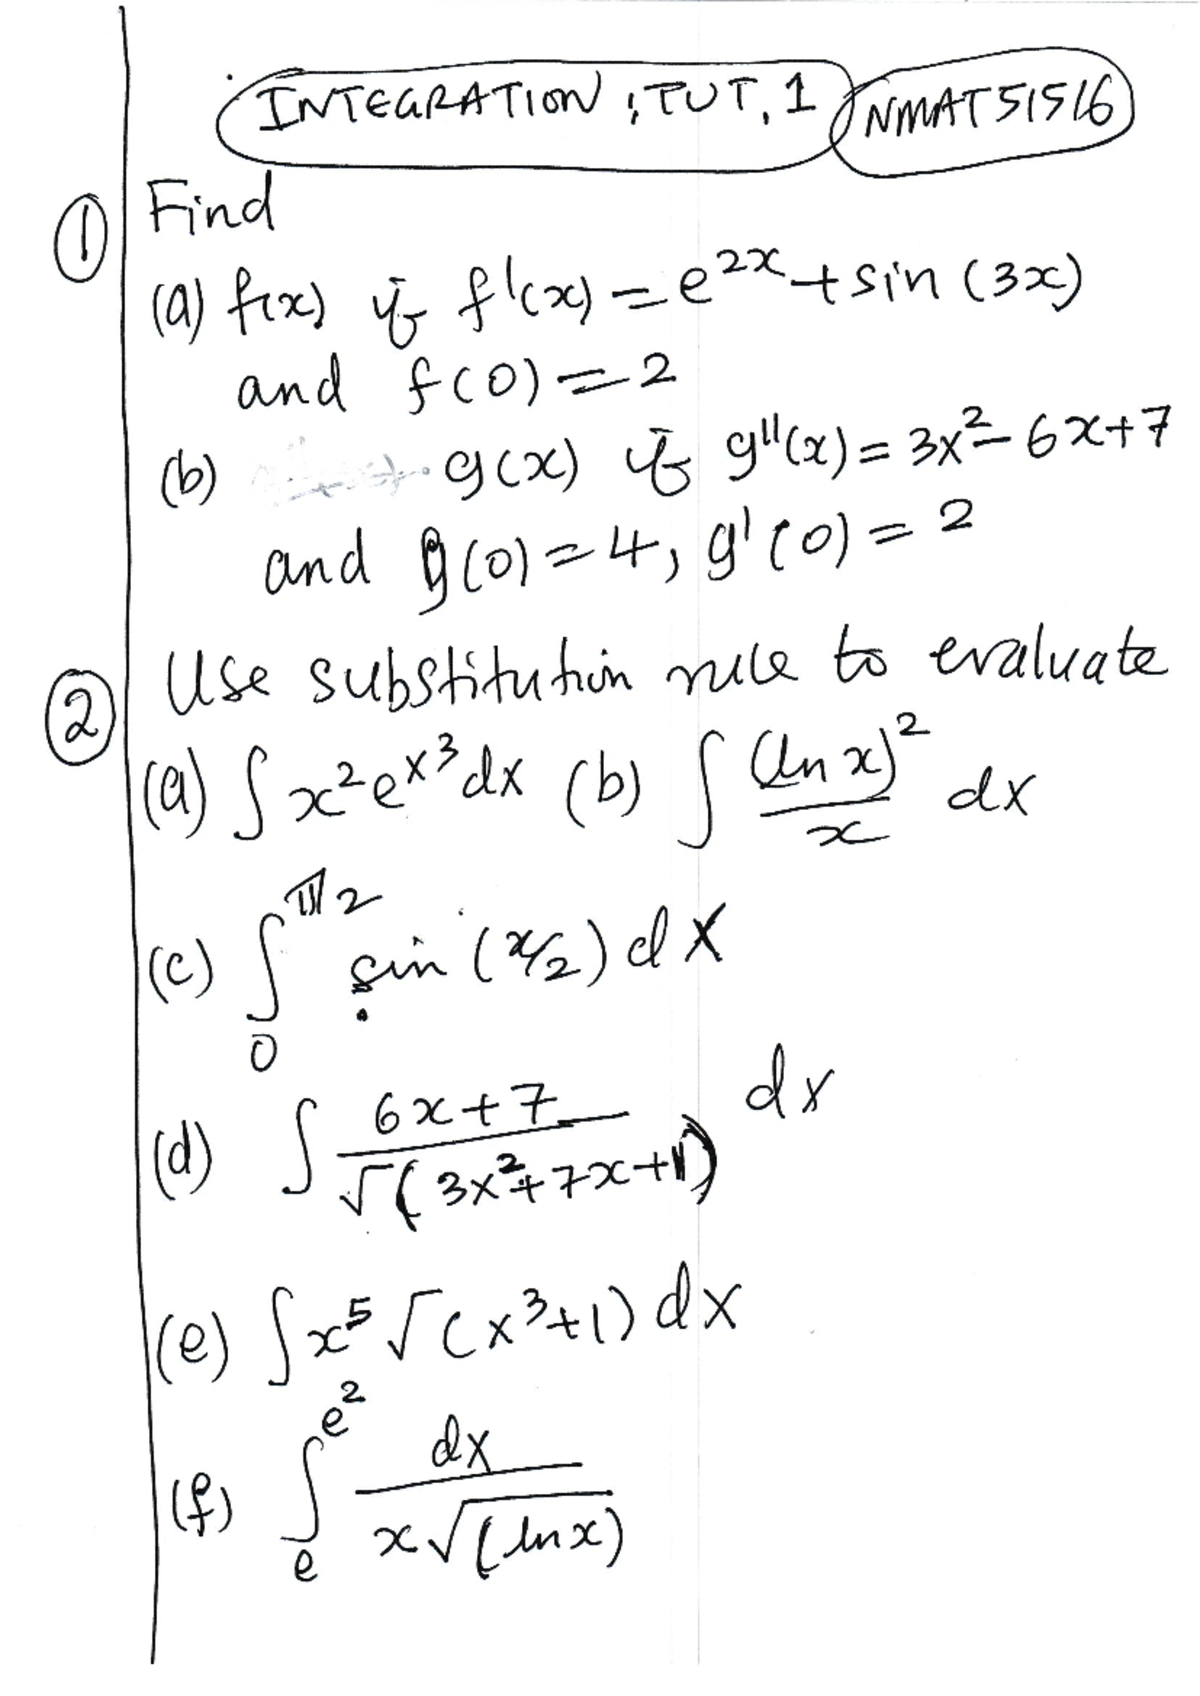 INTEGRATION ; TUT, 1 NMAT51516
① Find
(a) f(x) if f'(x) = e^2x + sin (3x)
and f(0) = 2
(b) g(x) if g''(x) = 3x² - 6x+7
and g(0) = 4, g'(0) = 2
② Use substitution rule to evaluate
(a) ∫ x² e^x³ dx (b) ∫ (ln x)² / x dx
(c) ∫₀^π/2 sin (x/2) dx
(d) ∫ 6x+7 / √(3x²+7x+1) dx
(e) ∫ x⁵ √(x³+1) dx
(f) ∫ₑ^e² dx / x√(ln x)